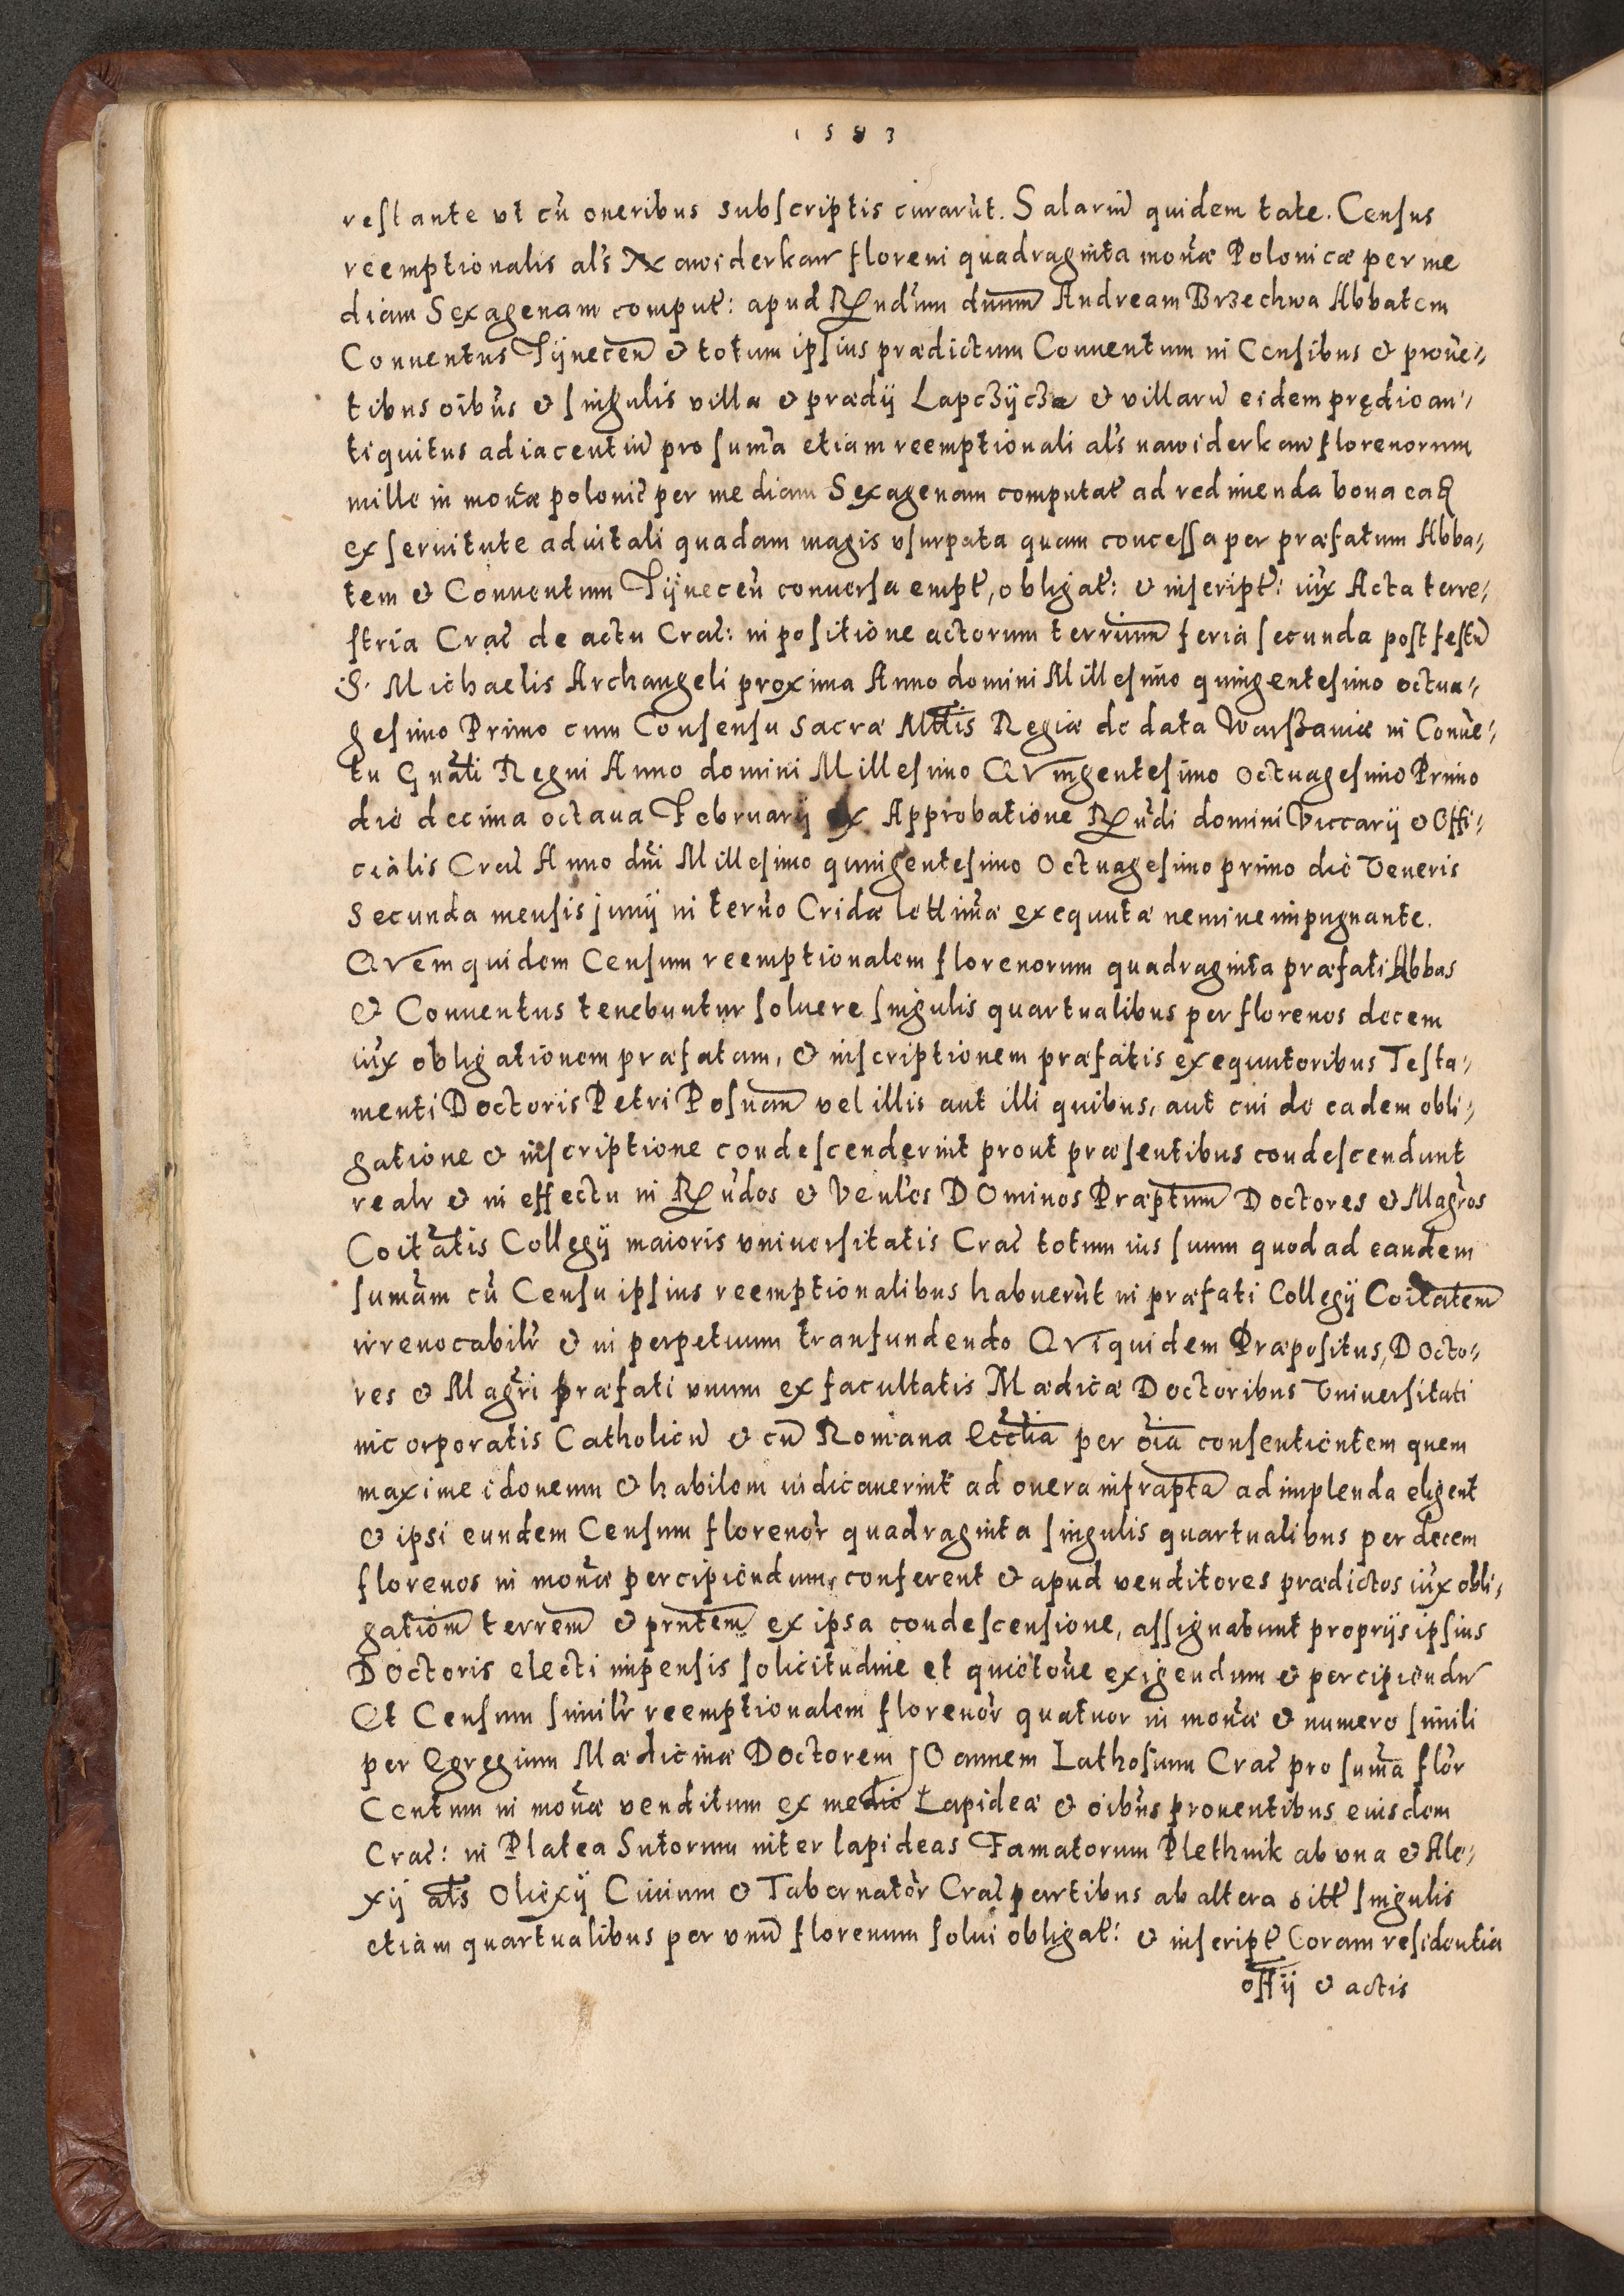 1583
restante vt cũ oneribus subscriptis curarũt. Salariũ quidem tale. Census
reemptionalis al's Nawiderkaw floreni quadraginta monæ Polonicæ per me
diam Sexagenam comput: apud Rndum dnum Andream Brzechwa Abbatem
Conuentus Tÿnecen & totum ipsius prædictum Conuentum in Censibus & proue-
tibus oibus & singulis villa & prædij Lapczÿcza & villarũ eidem prędio an-
tiquitus adiacentiũ pro suma etiam reemptionali al's nawiderkaw florenorum
mille in mona polonic per mediam Sexagenam computat ad redimenda bona eaq
ex seruitute aduitali quadam magis vsurpata quam concessa per præfatum Abba-
tem & Conuentum Tÿnecen conuersa empt, obligat: & inscript: iux Acta terre-
stria Crac de actu Crac: in positione actorum terrium feria secunda post festũ
S. Michaelis Archangeli proxima Anno domini Millesimo quingentesimo octua-
gesimo Primo cum Consensu Sacræ Mttis Regiæ de data Warszauiæ in Conue-
tu Gnali Regni Anno domini Millesimo Qvingentesimo Octuagesimo Primo
die decima octaua Februarij ex Approbatione Rndi domini Viccarij & Offi-
cialis Crac Anno dni Millesimo quingentesimo Octuagesimo primo die Veneris
Secunda mensis junij in termo Cridæ lettimæ exequutæ nemine impugnante.
Qvem quidem Censum reemptionalem florenorum quadraginta præfati Abbas
& Conuentus tenebuntur soluere singulis quartualibus per florenos decem
iux obligationem præfatam, & inscriptionem præfatis exequutoribus Testa-
menti Doctoris Petri Posnan vel illis aut illi quibus, aut cui de eadem obli-
gatione & inscriptione condescenderint prout præsentibus condescendunt
realr & in effectu in Rndos & Venles DOminos Præptum Doctores & Magros
Coitatis Collegij maioris vniuersitatis Crac totum ius suum quod ad eandem
sumam cũ Censu ipsius reemptionalibus habuerũt in præfati Collegij Coitatem
irreuocabilr & in perpetuum transfundendo Qvi quidem Præpositus, Docto-
res & Magri præfati vnum ex facultatis Mædicæ Doctoribus Vniuersitati
incorporatis Catholicũ & cũ Romana Ecctia per oia consentientem quem
maxime idoneum & habilem iudicauerint ad onera infrapta adimplenda eligent
& ipsi eundem Censum florenor quadraginta singulis quartualibus per decem
florenos in mona percipiendum, conferent & apud venditores prædictos iux obli-
gationm terrem & prntem ex ipsa condescensione, assignabunt proprijs ipsius
Doctoris electi impensis solicitudine et quietone exigendum & percipiendũ
Et Censum similr reemptionalem florenor quatuor in mona & numero simili
per Egregium Mædicinæ Doctorem JOannem Lathosium Crac pro suma flor
Centum in mona venditum ex medio Lapideæ & oibus prouentibus eiusdem
Crac: in Platea Sutorum inter lapideas Famatorum Plethnik ab vna & Ale-
xij als Olexij Ciuium & Tabernator Crac partibus ab altera sitt singulis
etiam quartualibus per vnũ florenum solui obligat: & inscript Coram residentia
offij & actis